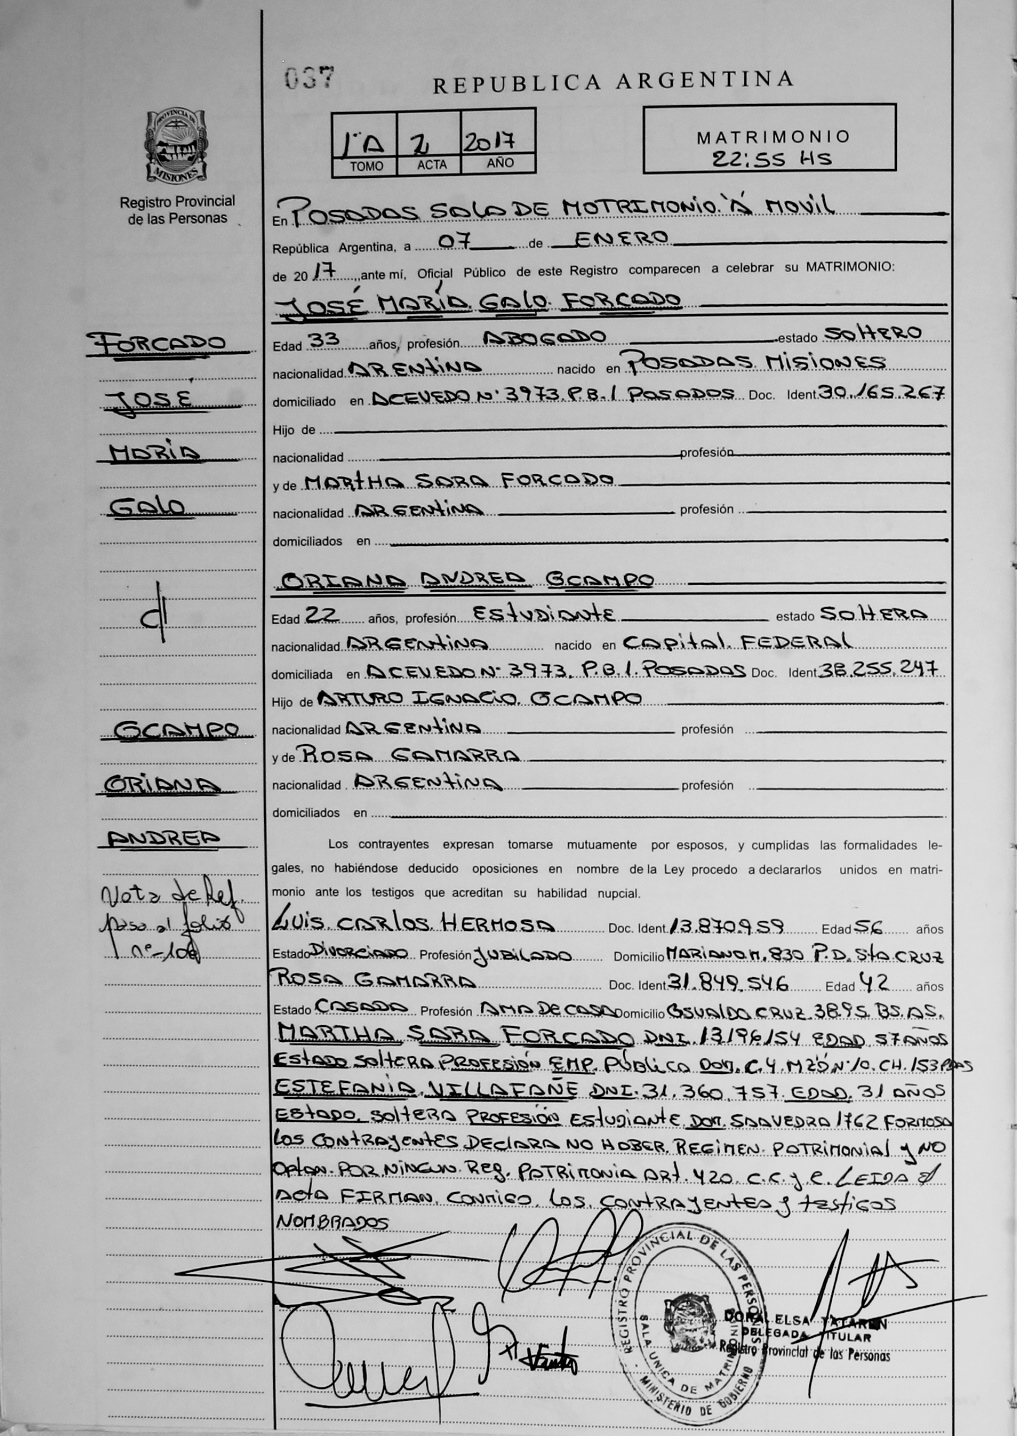 037
REPUBLICA ARGENTINA
PROVINCIA DE MISIONES
Registro Provincial
de las Personas
1ºA 2 2017
TOMO ACTA AÑO
MATRIMONIO
22:55 HS
En POSADAS SALA DE MOTRIMONIO "A" MOVIL
República Argentina, a 07 de ENERO
de 2017, ante mí, Oficial Público de este Registro comparecen a celebrar su MATRIMONIO:
JOSÉ MARÍA GALO FORCADO
Edad 33 años, profesión ABOGADO estado SOLTERO
nacionalidad ARENTINA nacido en POSADAS MISIONES
domiciliado en ACEVEDO Nº 3973 P.B. 1 POSADAS Doc. Ident 30.165.267
Hijo de
nacionalidad profesión
y de MARTHA SARA FORCADO
nacionalidad ARGENTINA profesión
domiciliados en
ORIANA ANDREA OCAMPO
Edad 22 años, profesión ESTUDIANTE estado SOLTERA
nacionalidad ARGENTINA nacido en CAPITAL FEDERAL
domiciliada en ACEVEDO Nº 3973, P.B. 1. POSADAS Doc. Ident 38.255.247
Hijo de ARTURO IGNACIO OCAMPO
nacionalidad ARGENTINA profesión
y de ROSA GAMARRA
nacionalidad ARGENTINA profesión
domiciliados en
Los contrayentes expresan tomarse mutuamente por esposos, y cumplidas las formalidades le-
gales, no habiéndose deducido oposiciones en nombre de la Ley procedo a declararlos unidos en matri-
monio ante los testigos que acreditan su habilidad nupcial.
LUIS CARLOS HERMOSA Doc. Ident 13.870.959 Edad 56 años
Estado DIVORCIADO Profesión JUBILADO Domicilio MARIANO M. 830 P.D. Sta CRUZ
ROSA GAMARRA Doc. Ident 31.849.546 Edad 42 años
Estado CASADA Profesión AMA DE CASA Domicilio OSVALDO CRUZ 3895 BS.AS.
MARTHA SARA FORCADO DNI. 13196154 EDAD 57 AÑOS
ESTADO SOLTERA PROFESIÓN EMP. PÚBLICA DOM. C.4 MZD Nº10. CH. 153 PDAS
ESTEFANÍA VILLAFAÑE DNI. 31.360.757 EDAD. 31 AÑOS
ESTADO. SOLTERA PROFESIÓN ESTUDIANTE DOM. SAAVEDRA 1762 FORMOSA
LOS CONTRAYENTES DECLARA NO HABER REGIMEN PATRIMONIAL y NO
OPTAN POR NINGUN Reg. PATRIMONIA ART. 420. C.C. y C. LEIDA el
ACTA FIRMAN. CONMIGO. LOS CONTRAYENTES y TESTIGOS
NOMBRADOS
FORCADO
JOSE
MARIA
GALO
c/
OCAMPO
ORIANA
ANDREA
Nota de Ref.
pasa al folio
nº-100
REGISTRO PROVINCIAL DE LAS PERSONAS
SALA UNICA DE MATRIMONIO
MINISTERIO DE GOBIERNO
DORA ELSA TATAREN
DELEGADA TITULAR
Registro Provincial de las Personas